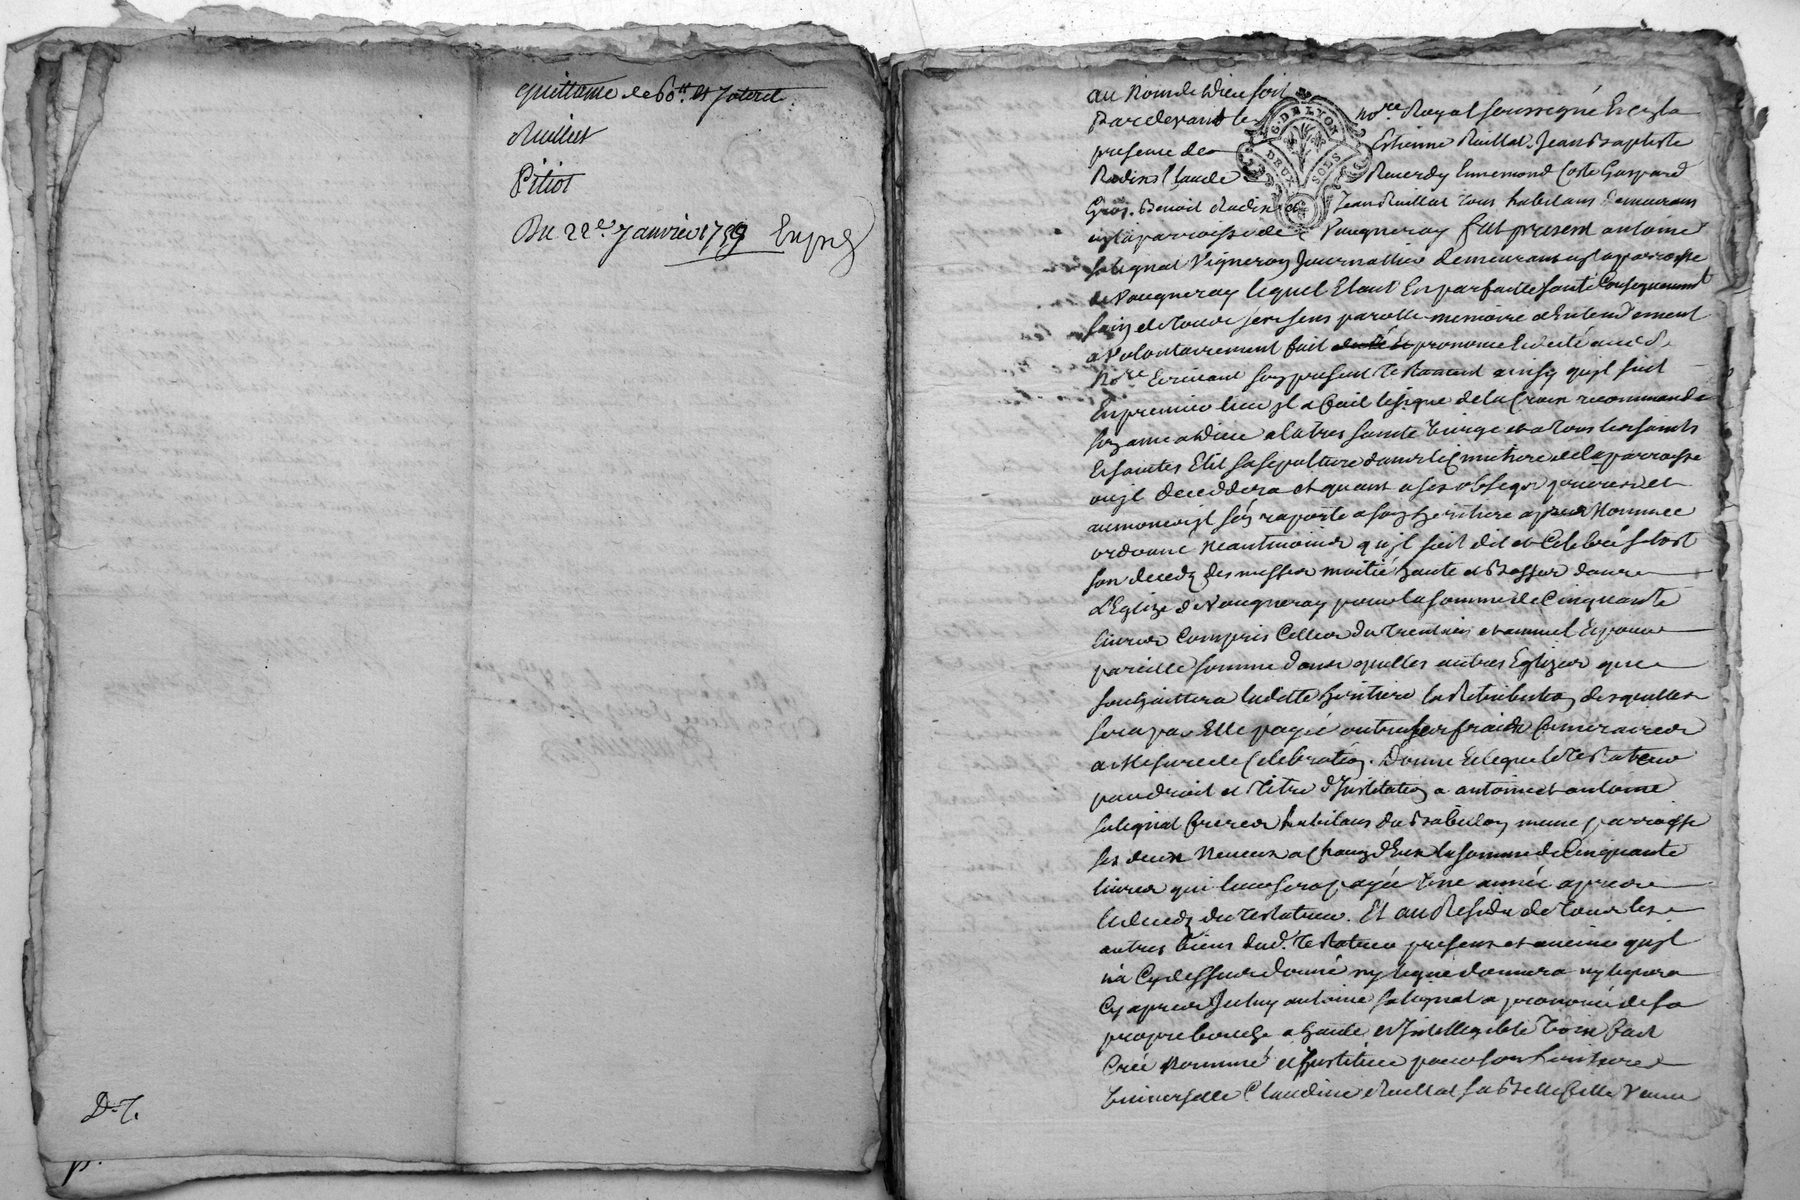 Quittance de 60.ᵗᵗ et Jnterets.
Ruillat
Pitiot
Du 22.e Janvier 1759 Exped
D.T.
p.
au Nom de Dieu soit
Pardevant le no.re Royal soussigné Et en la
G. DE LYON
DEUX SOLS
presence de Estienne Ruillat, Jean Baptiste
Radix Claude Reverdy Ennemond Coste Gaspard
Gros, Benoit Radix et Jean Ruillat tous habitans demeurans
en la parroisse de Vaugneray fut present antoine
Salignat Vigneron Journallier demeurant en la parroisse
de Vaugneray lequel Etant En parfaitte santé Consequemment
sain de tous ses sens parolle memoire et Entendement
a Volontairement fait dicté et prononcé Et dicté aud.
No.re Ecrivant son present testament ainsy qu'jl suit
En premier lieu jl a fait le signe de la Croix recommandé
son ame a Dieu a la tres sainte Vierge et a tous les saints
Et saintes Elit sa sepulture dans le Cimetiere de la parroisse
ou jl deceddera et quant a ses obseques prieres et
aumones jl s'en raporte a son heritiere apres Nommée
ordonne Neantmoins qu'jl soit dit et Celebré sitost
son decedz des messes moitié haute et Basses dans
L'Eglize de Vaugneray pour la somme de Cinquante
livres Compris Celles du trentain et annuel Et pour
pareille somme dans quelles autres Eglizes que
souhaittera laditte heritiere la Retribution desquelles
sera par Elle payée outre les fraids funeraires
a Mesure de Celebration. Donne Et legue le Testateur
par droit et Titre d'Institution a antoine et antoine
Salignat freres habitans du Babulon meme parroisse
ses deux Neveux a Chacun d'Eux la somme de Cinquante
livres qui leur sera payée Une année apres
le decedz du Testateur. Et au Residu de tous les
autres biens dud. Testateur presens et avenir qu'jl
n'a Cy dessus donné ny legué donnera ny leguera
Cy apres Jceluy antoine Salignat a prononcé de sa
propre bouche a haute et Jntelligible Voix fait
Créé Nommé et Jnstitué pour son heritiere
Universelle Claudine Ruillat sa Belle fille Veuve